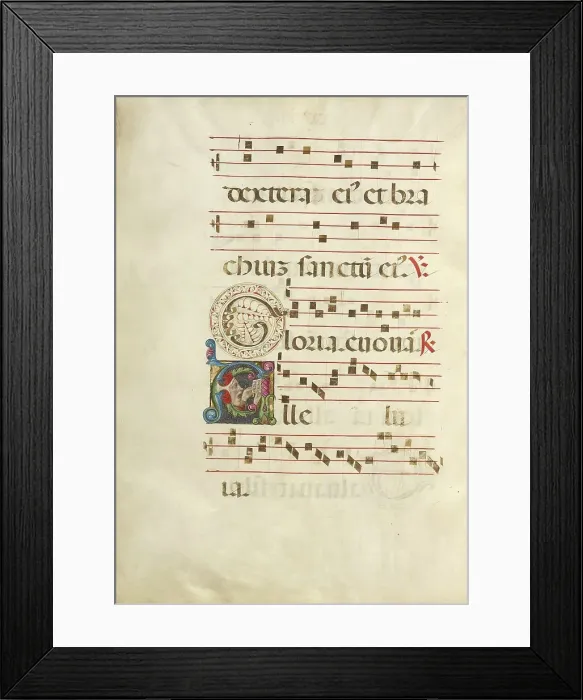 dextera ei⁹ et bra
chuiz sanctū ei⁹. V:
Gloria. euouā. R.
Alle lu
ia.